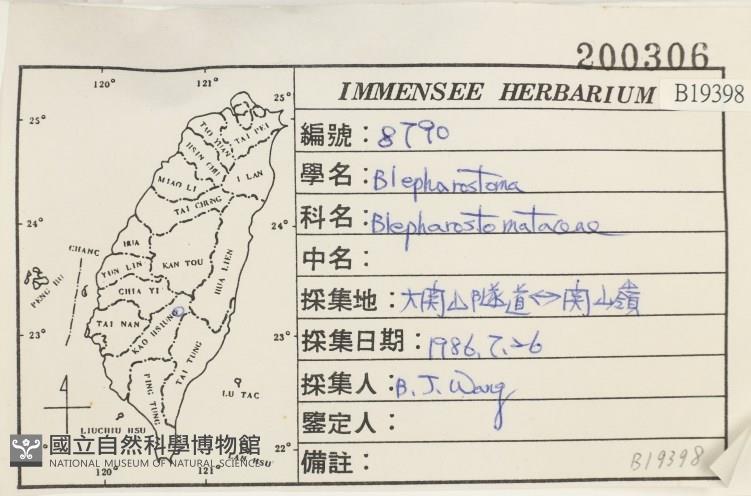 200306
IMMENSEE HERBARIUM B19398
編號：8790
學名：Blepharostoma
科名：Blepharostomataceae
中名：
採集地：大関山隧道↔関山嶺
採集日期：1986.7.26
採集人：B.J. Wang
鑒定人：
備註：
B19398
120° 121°
25° 25°
TAO YUAN TAI PEI
HSIN CHU
I LAN
MIAO LI
TAI CHNG
24° 24°
CHANG HUA
YUN LIN KAN TOU HUA LIEN
PENG HU
CHIA YI
TAI NAN
23° 23°
KAO HSIUNG
TAI TUNG
PING TUNG
LU TAC
LIUCHIU HSU
22° 22°
LAN HSU
120° 121°
國立自然科學博物館
NATIONAL MUSEUM OF NATURAL SCIENCE